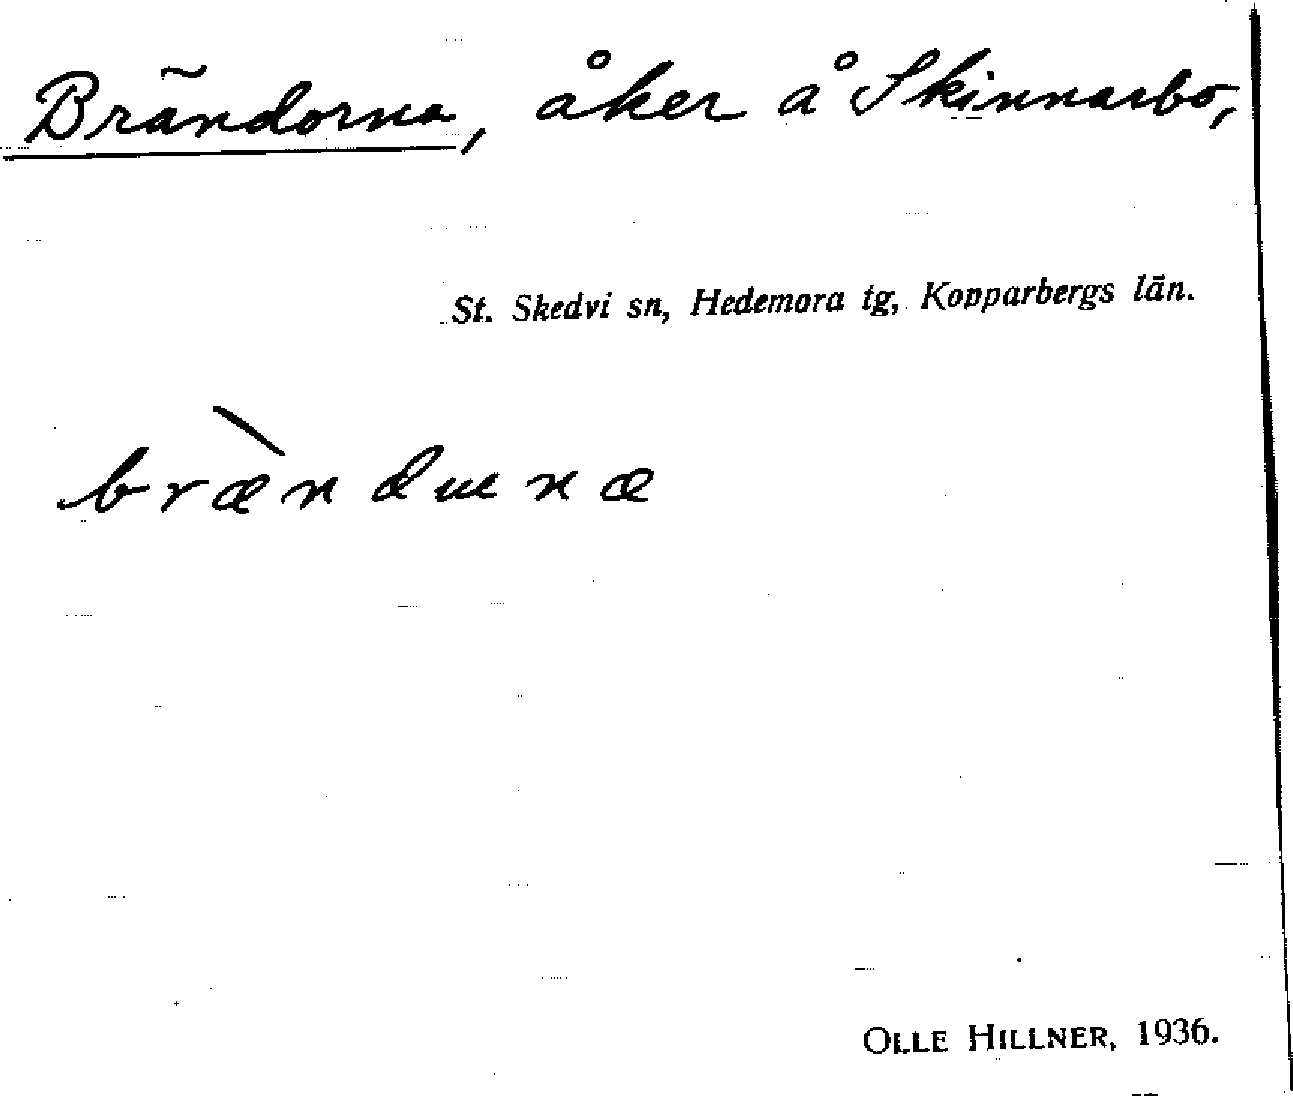 Brändorna, åker å Skinnarbo,
St. Skedvi sn, Hedemora tg, Kopparbergs län.
bræ̀ndɯnæ
OLLE HILLNER, 1936.